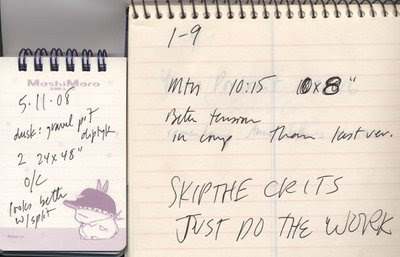 MashiMaro
5.11.08
dusk: gravel pit
diptych
2 24x48"
O/C
looks better
w/split
1-9
Mtn 10:15 10x8"
Better tension
in comp than last ver.
SKIP THE CRITS
JUST DO THE WORK